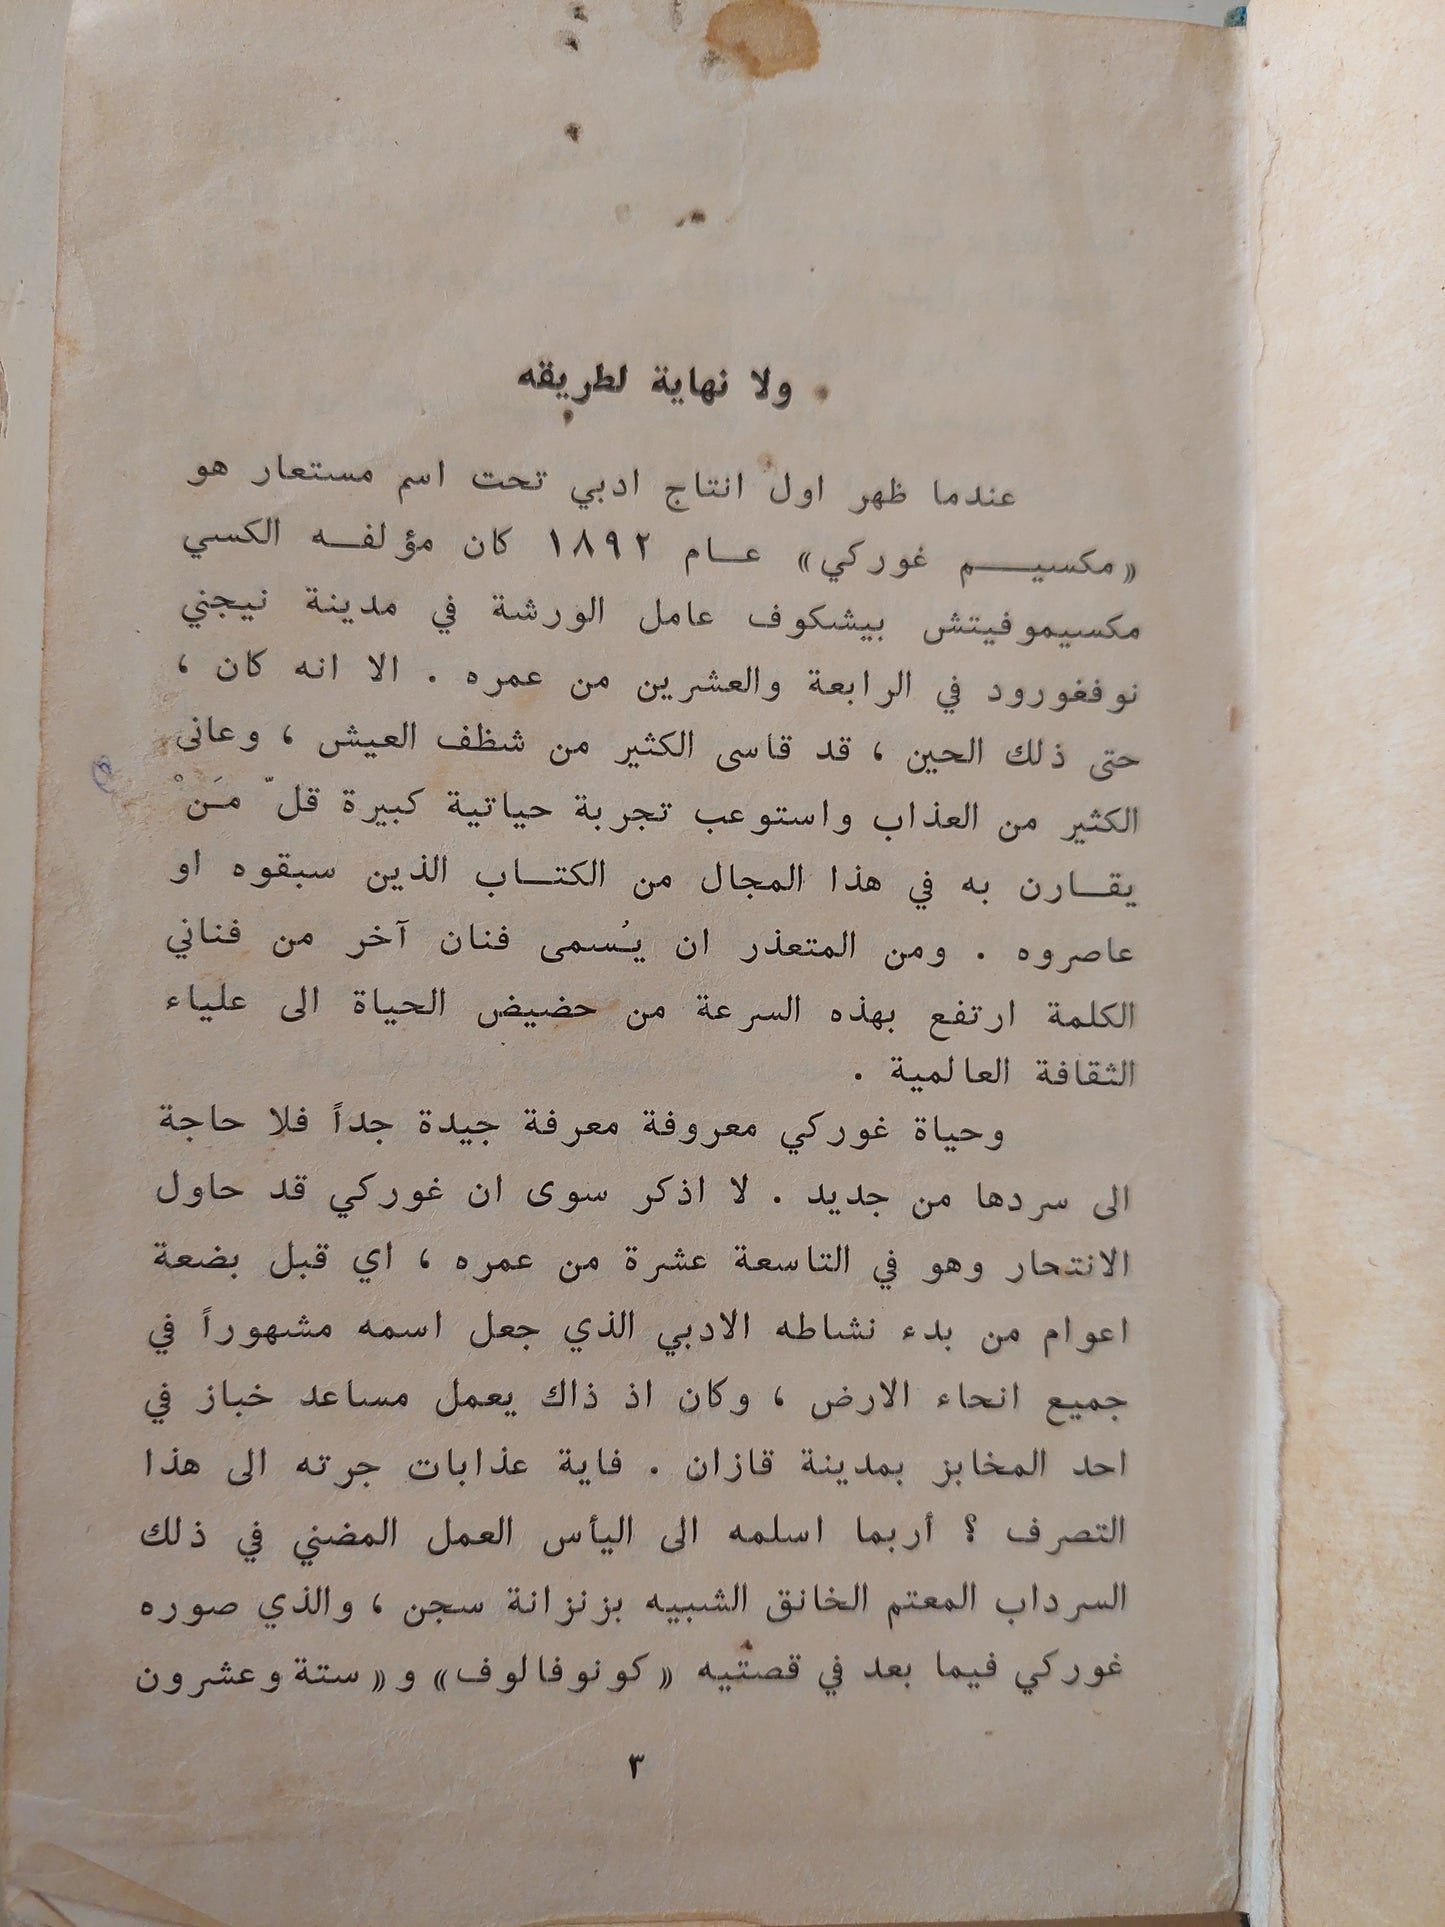 ولا نهاية لطريقه
عندما ظهر اول انتاج ادبي تحت اسم مستعار هو
«مكسيم غوركي» عام ١٨٩٢ كان مؤلفه الكسي
مكسيموفيتش بيشكوف عامل الورشة في مدينة نيجني
نوفغورود في الرابعة والعشرين من عمره . الا انه كان ،
حتى ذلك الحين ، قد قاسى الكثير من شظف العيش ، وعانى
الكثير من العذاب واستوعب تجربة حياتية كبيرة قلّ مَنْ
يقارن به في هذا المجال من الكتاب الذين سبقوه او
عاصروه . ومن المتعذر ان يُسمى فنان آخر من فناني
الكلمة ارتفع بهذه السرعة من حضيض الحياة الى علياء
الثقافة العالمية .
وحياة غوركي معروفة معرفة جيدة جداً فلا حاجة
الى سردها من جديد . لا اذكر سوى ان غوركي قد حاول
الانتحار وهو في التاسعة عشرة من عمره ، اي قبل بضعة
اعوام من بدء نشاطه الادبي الذي جعل اسمه مشهوراً في
جميع انحاء الارض ، وكان اذ ذاك يعمل مساعد خباز في
احد المخابز بمدينة قازان . فاية عذابات جرته الى هذا
التصرف ؟ أربما اسلمه الى اليأس العمل المضني في ذلك
السرداب المعتم الخانق الشبيه بزنزانة سجن ، والذي صوره
غوركي فيما بعد في قصتيه «كونوفالوف» و«ستة وعشرون
٣